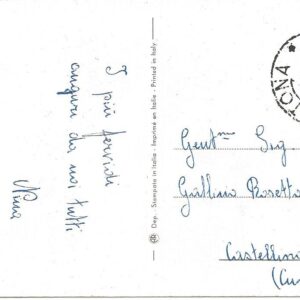 I più fervidi
auguri da noi tutti
Nina
Dep. Stampato in Italia - Imprimé en Italie - Printed in Italy
TONA *
Gent.me Sig.
Gallina Rosetta
Castellin
(Cu